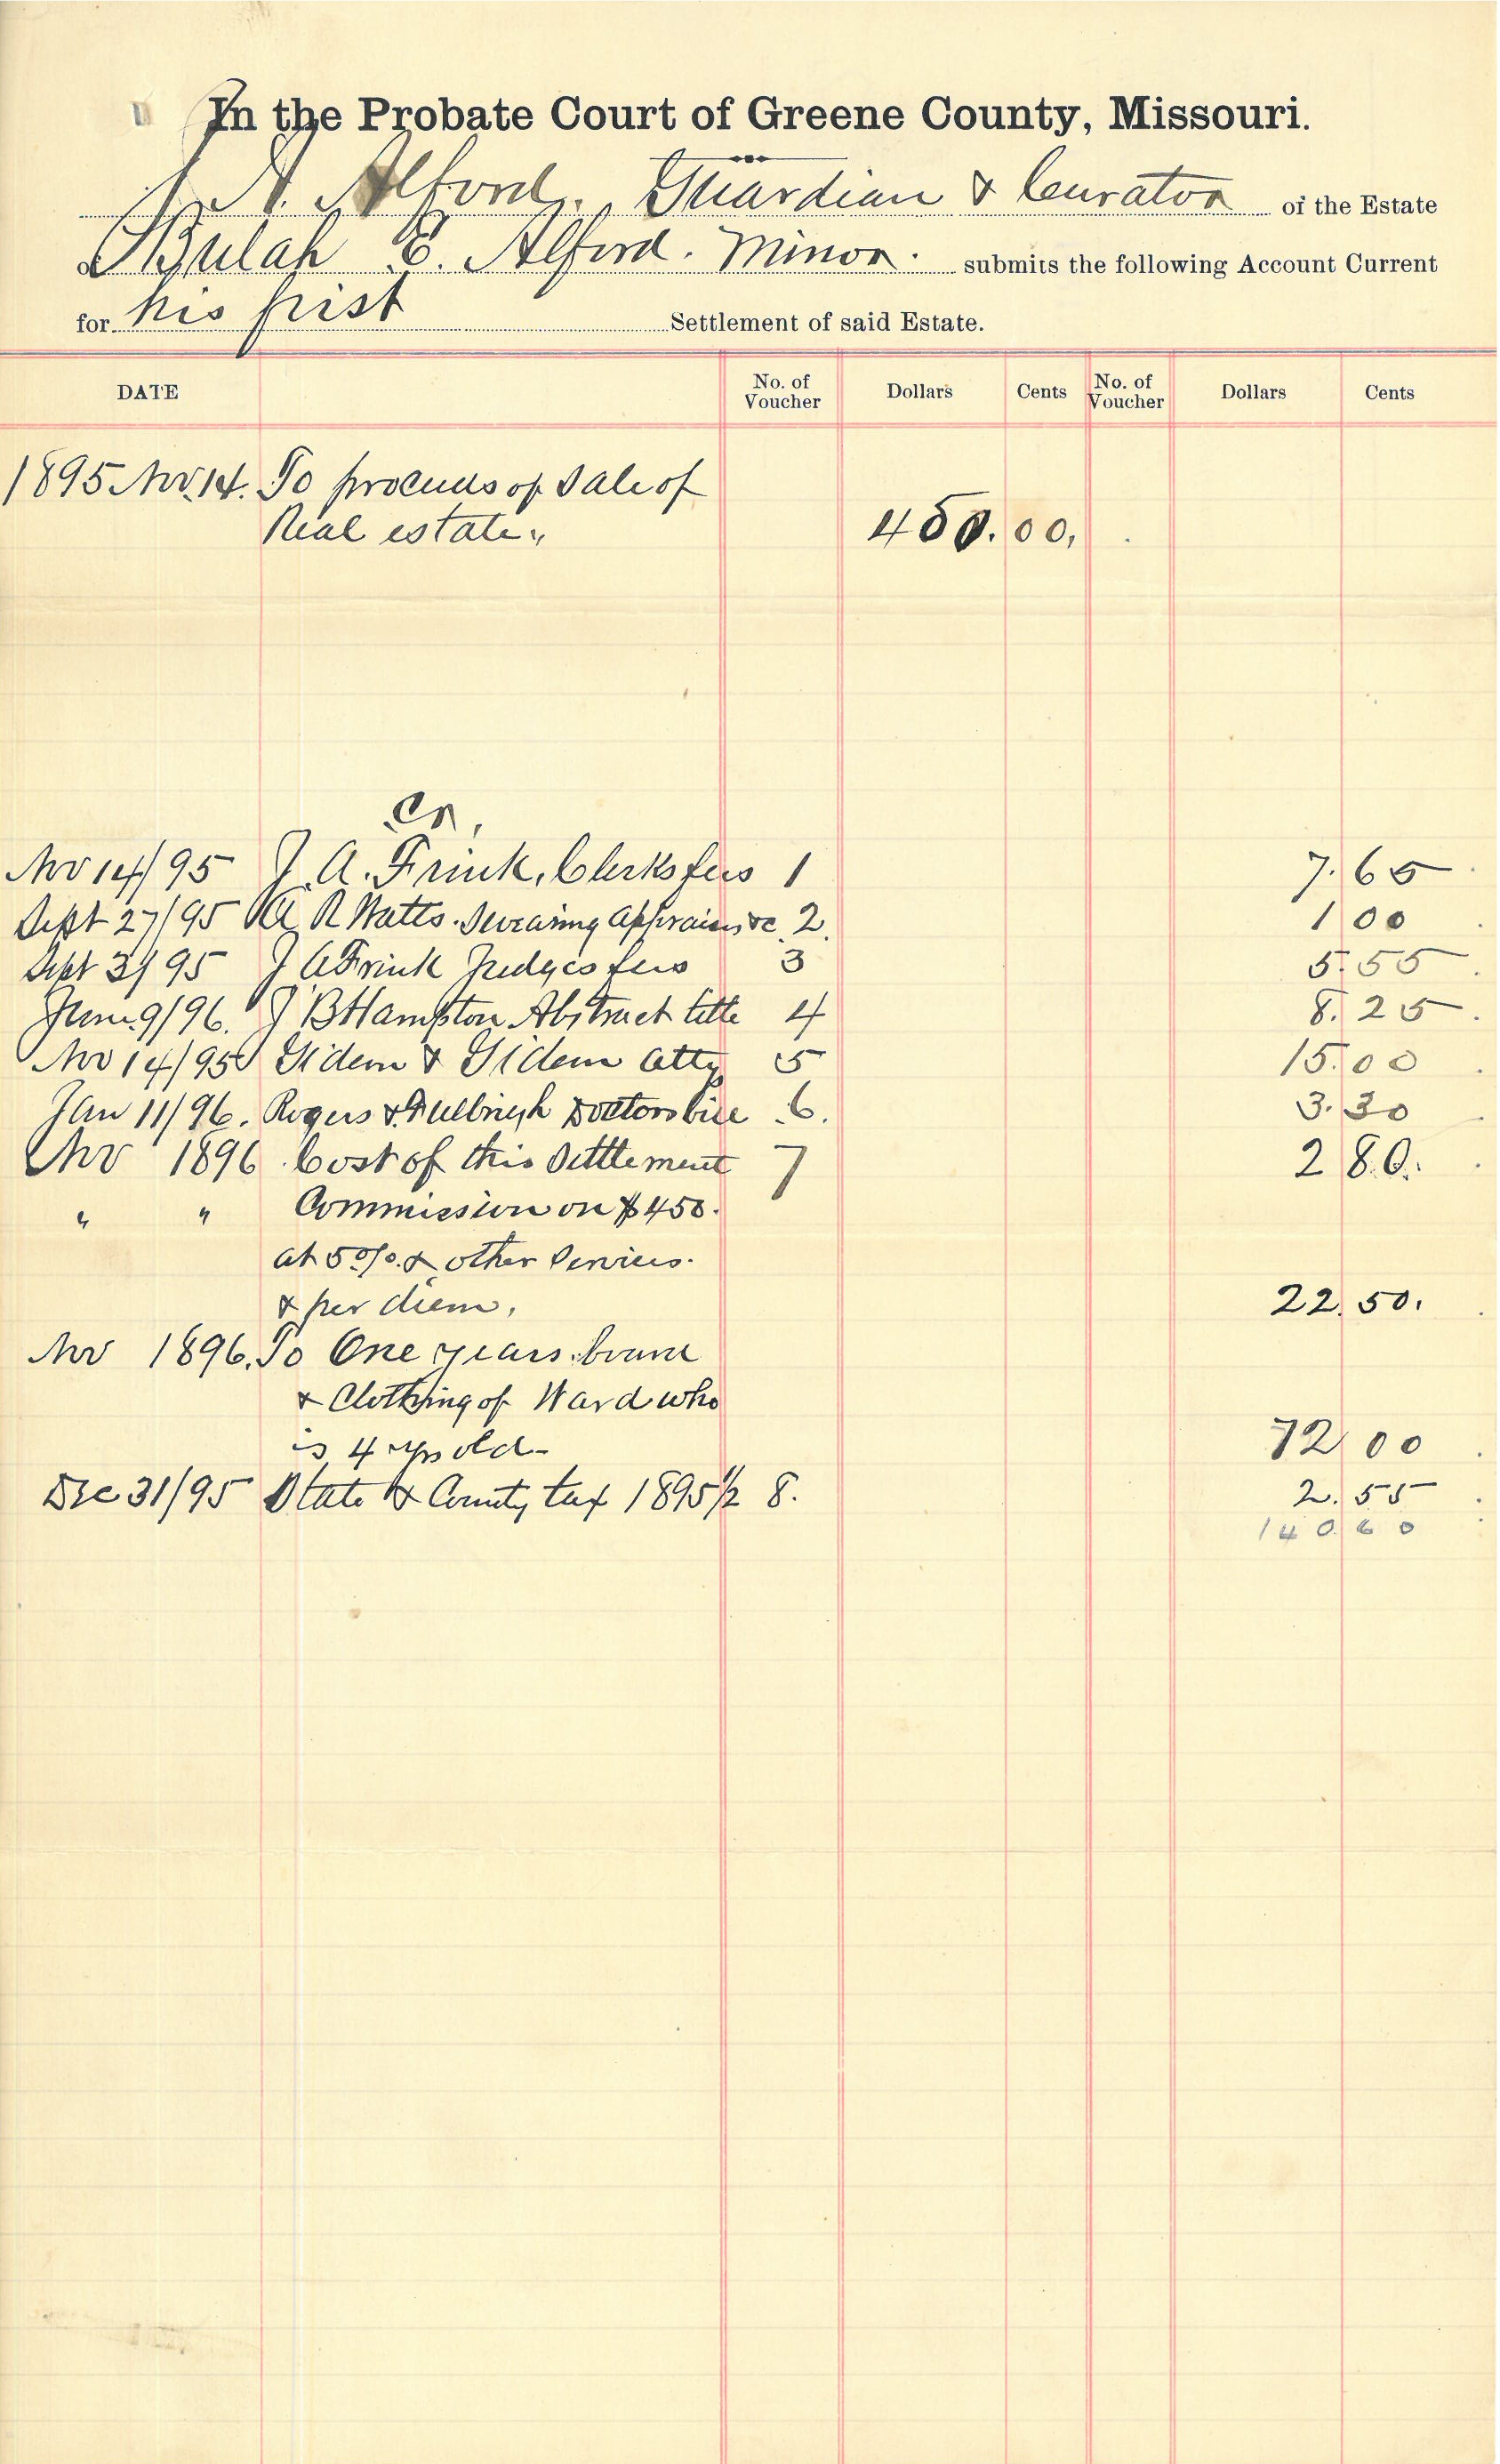 In the Probate Court of Greene County, Missouri.
Alford. Guardian & Curator of the Estate
Bulah E. Alford. Minor. submits the following Account Current
for his first Settlement of said Estate.
DATE No. of Voucher Dollars Cents No. of Voucher Dollars Cents
1895 Nov. 14. To proceeds of Sale of
Real estate. 450.00.
Cr,
Nov 14/95 J. A. Frink, Clerks fees 1 7.65
Sept 27/95 R Watts. Swearing appraisers 2. 1 00
Sept 3/95 J A Frink Judges fees 3 5.55
June 9/96. J B Hampton Abstract title 4 8.25
Nov 14/95 & atty 5 15.00
Jan 11/96. Rogers & Fulbright Doctors bill 6. 3.30
Nov 1896 Cost of this Settlement 7 2 80.
" " Commission on $450.
at 5%. & other Services.
& per diem. 22.50.
Nov 1896. To One years board
& Clothing of Ward who
is 4 yrs old- 72 00
Dec 31/95 State & County tax 1895 1/2 8. 2.55
140.60